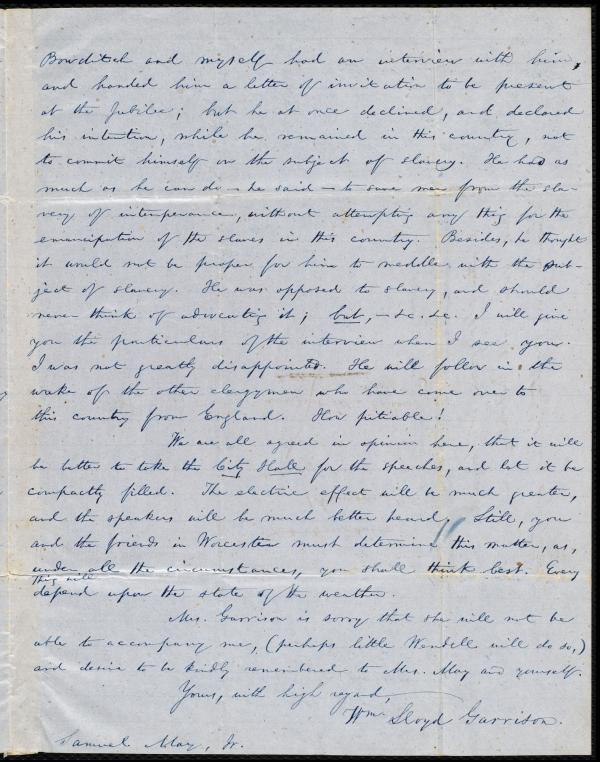 Bowditch and myself had an interview with him,
and handed him a letter of invitation to be present
at the Jubilee; but he at once declined, and declared
his intention, while he remained in this country, not
to commit himself on the subject of slavery. He had as
much as he can do — he said — to save men from the sla-
very of intemperance, without attempting any thing for the
emancipation of the slaves in this country. Besides, he thought
it would not be proper for him to meddle with the sub-
ject of slavery. He was opposed to slavery, and should
never think of advocating it; but, — &c. &c. I will give
you the particulars of the interview when I see you.
I was not greatly disappointed. He will follow in the
wake of the other clergymen who have come over to
this country from England. How pitiable!
We are all agreed in opinion here, that it will
be better to take the City Hall for the speeches, and let it be
compactly filled. The electric effect will be much greater,
and the speakers will be much better heard. Still, you
and the friends in Worcester must determine this matter, as,
under all the circumstances, you shall think best. Every
thing will
depend upon the state of the weather.
Mrs. Garrison is sorry that she will not be
able to accompany me, (perhaps little Wendell will do so,)
and desires to be kindly remembered to Mrs. May and yourself.
Yours, with high regard,
Wm. Lloyd Garrison.
Samuel May, Jr.